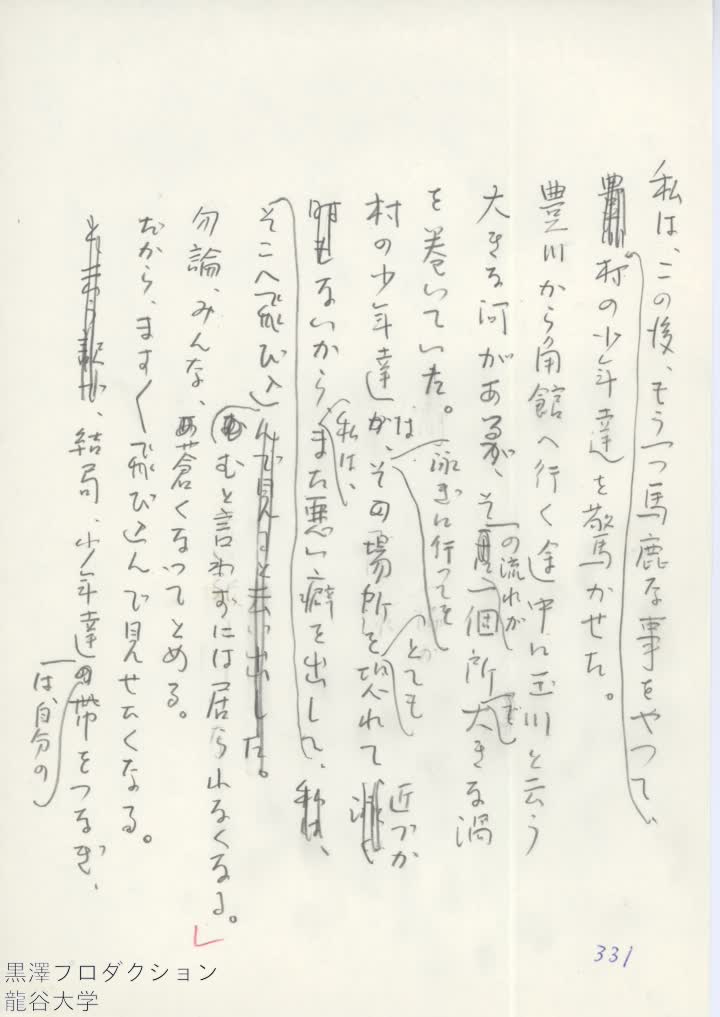 私は、この後、もう一つ馬鹿な事をやって、
村の少年達を驚かせた。
豊川から角館へ行く途中に玉川と云う
大きな河があるが、その流れが一個所で大きな渦
を巻いていた。
村の少年達は、泳ぎに行ってもその場所をとても恐れて近づか
ないから、私は、また悪い癖を出して、
そこへ飛び込
むと言わずには居られなくなる。
勿論、みんな、蒼くなってとめる。
だから、ます〱飛び込んで見せたくなる。
結局、少年達は、自分の帯をつなぎ、
331
黒澤プロダクション
龍谷大学